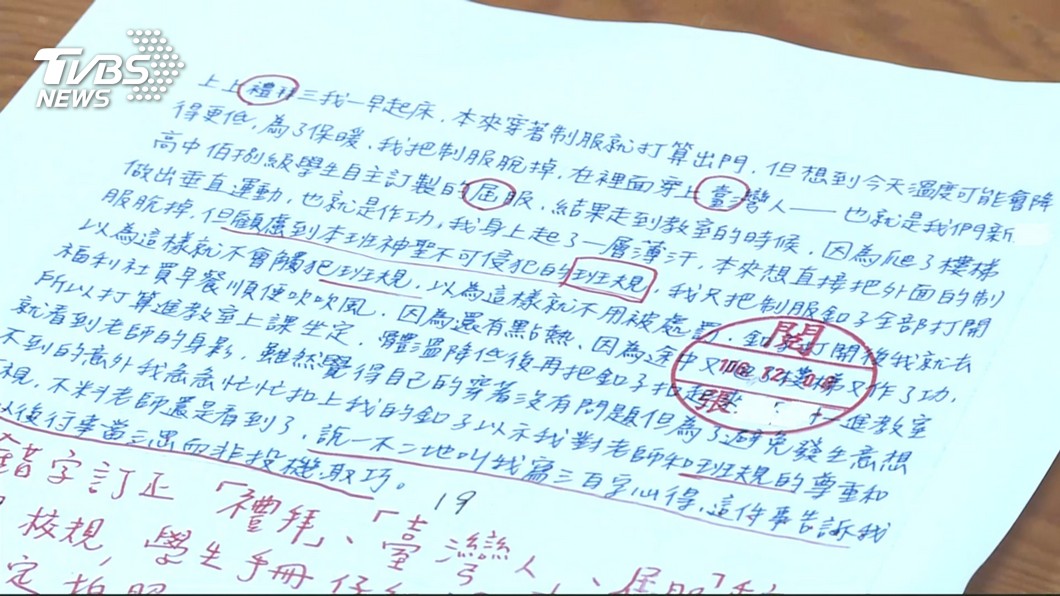 TVBS
NEWS
上上禮拜三我一早起床，本來穿著制服就打算出門，但想到今天溫度可能會降
得更低，為了保暖，我把制服脫掉，在裡面穿上臺灣人——也就是我們新
高中佰捌級學生自主訂製的屆服，結果走到教室的時候，因為爬了樓梯
做出垂直運動，也就是作功，我身上起了一層薄汗，本來想直接把外面的制
服脫掉，但顧慮到本班神聖不可侵犯的班規，我只把制服釦子全部打開
以為這樣就不會觸犯班規，以為這樣就不用被處罰，釦子打開後我就去
福利社買早餐順便吹吹風，因為還有點熱，因為途中又 樓梯又作了功，
所以打算進教室上課坐定，體溫降低後再把釦子扣起 一進教室
就看到老師的身影，雖然覺得自己的穿著沒有問題但為了避免發生意想
不到的意外我急急忙忙扣上我的釦子以示我對老師和班規的尊重和
視，不料老師還是看到了，說一不二地叫我寫三百字心得，這件事告訴我
以後行事當三思而非投機取巧。
19
閱
張
錯字訂正「禮拜」、「臺灣人」、「屆服」
校規，學生手冊
定拍照